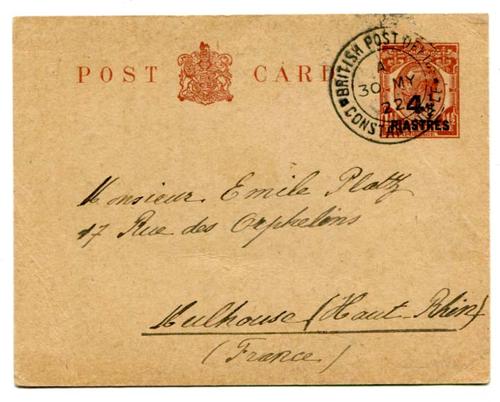 POST CARD
BRITISH POST OFFICE
A
30 MY
22
CONSTANTINOPLE
4
PIASTRES
Monsieur Emile Platz
17 Rue des Orphelins
Mulhouse (Haut Rhin)
(France)